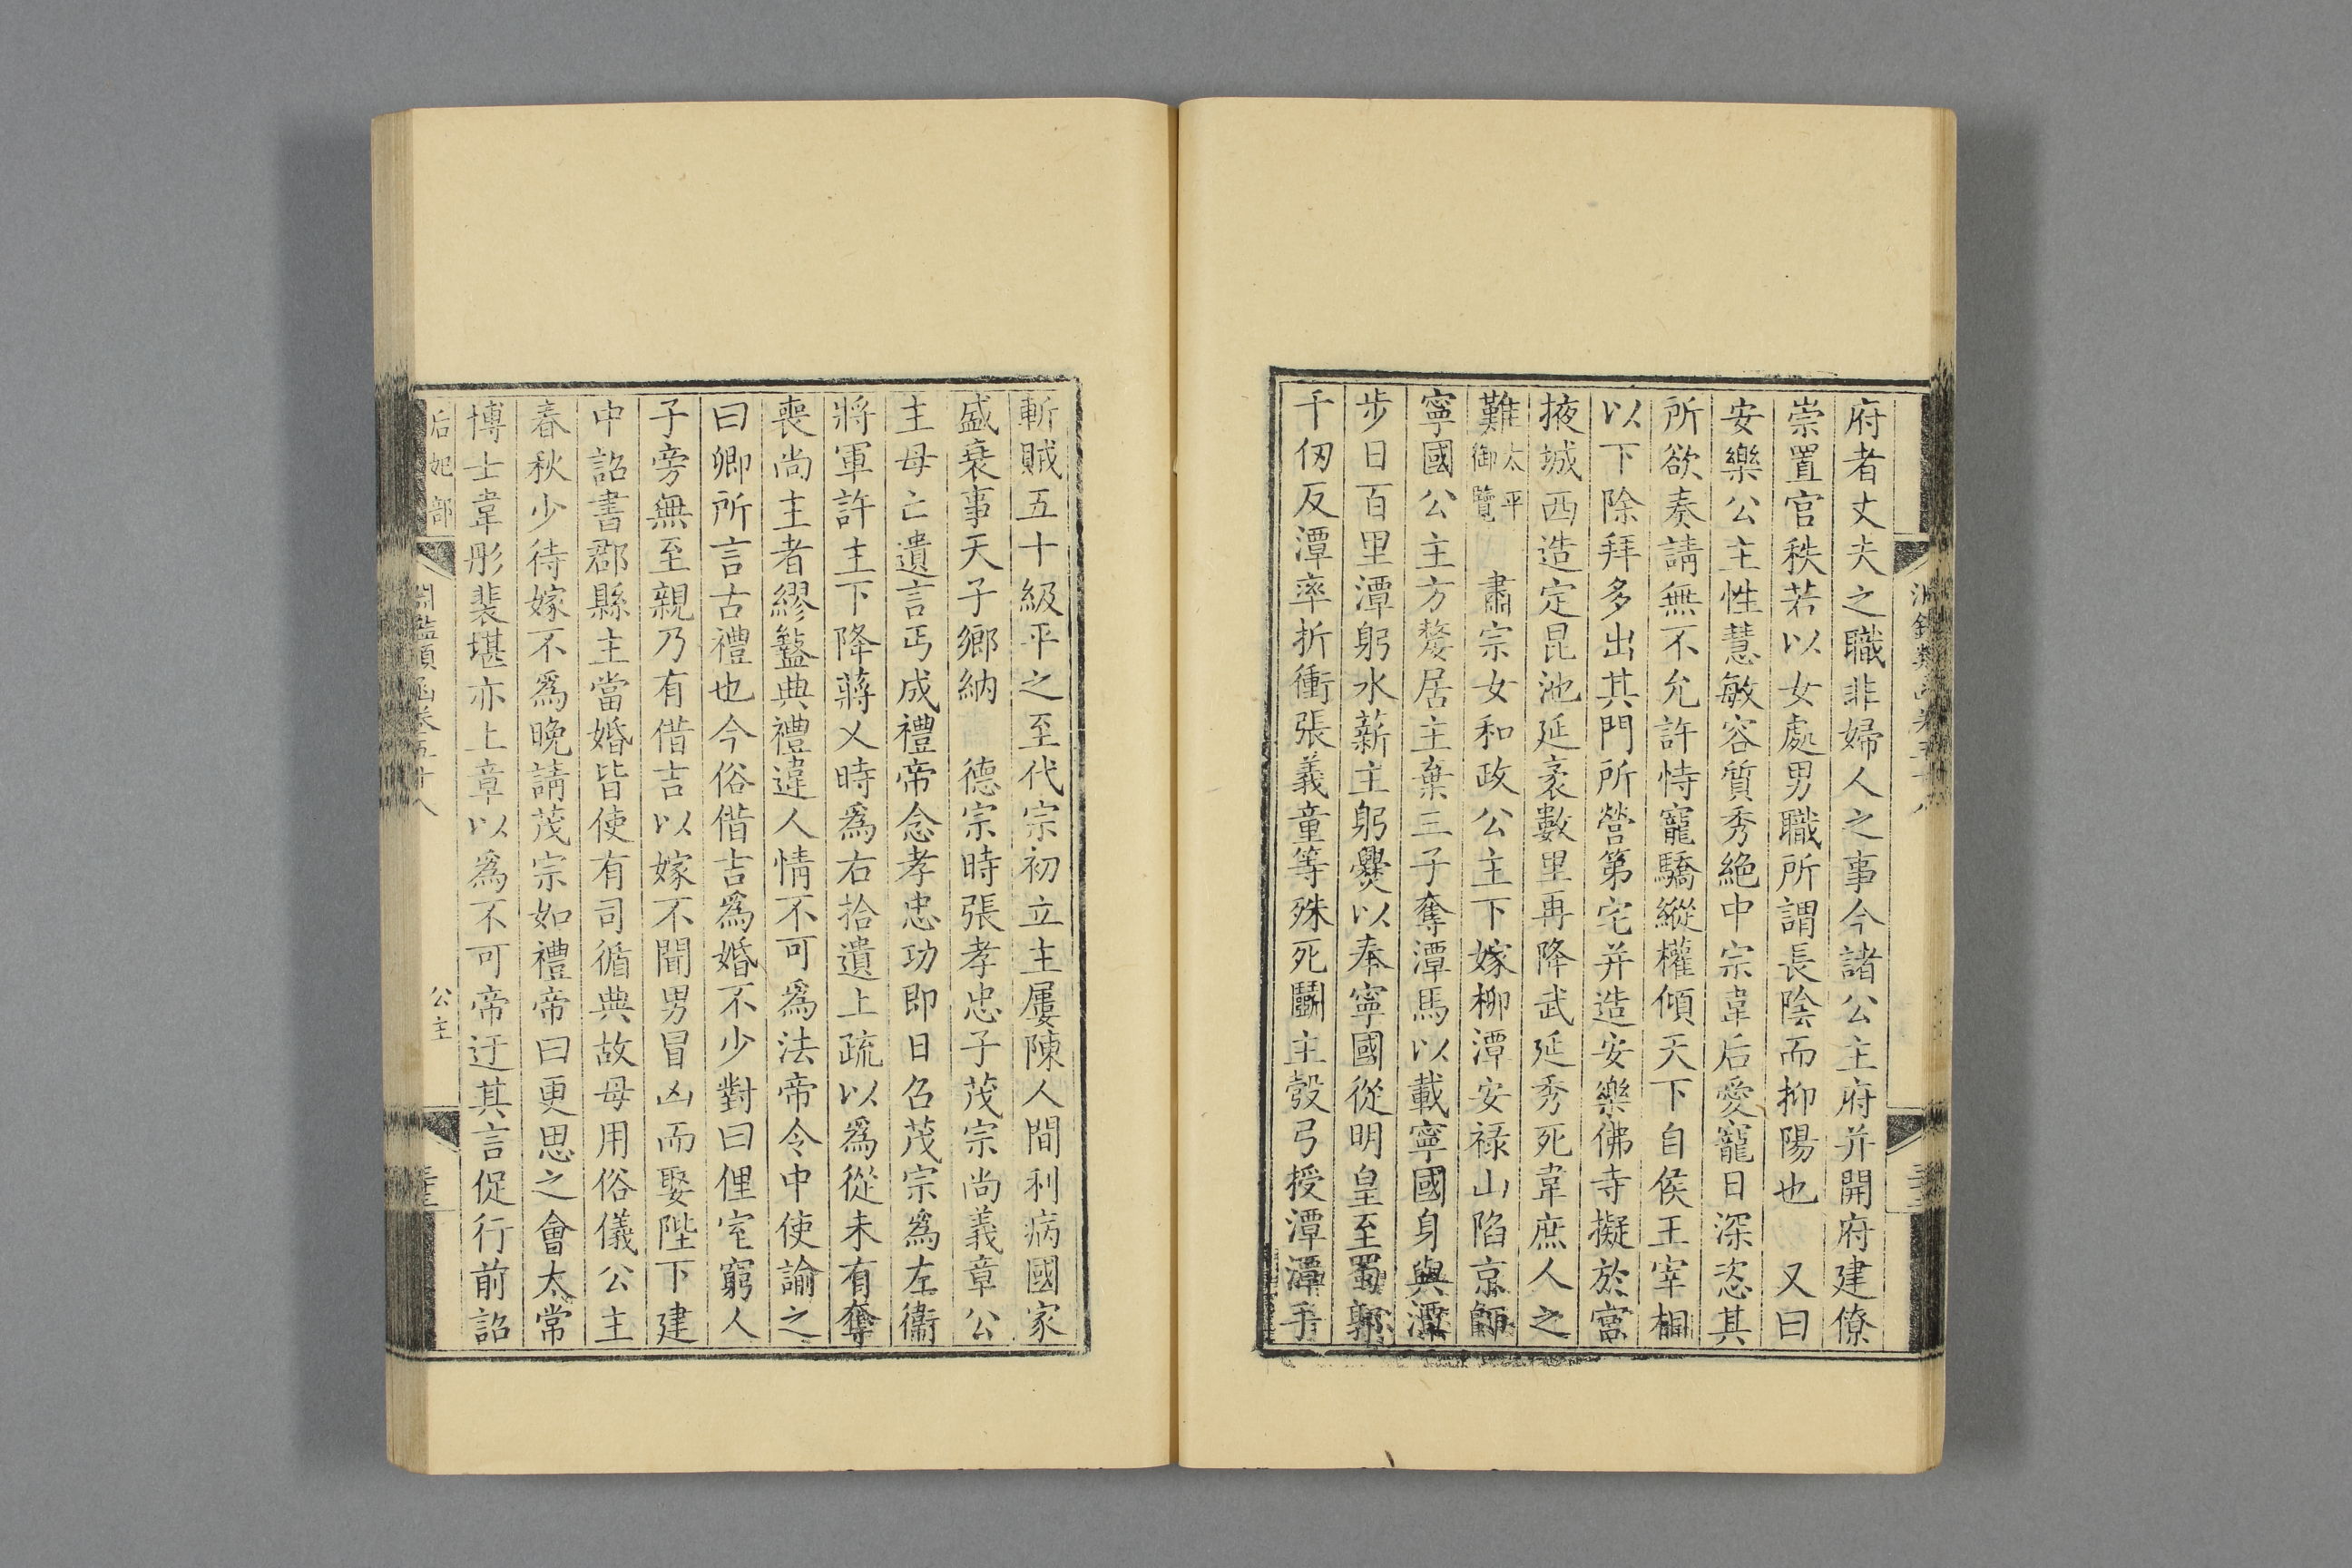 府者丈夫之職非婦人之事今諸公主府并開府建僚
崇置官秩若以女處男職所謂長陰而抑陽也 又曰
安樂公主性慧敏容質秀絶中宗韋后愛寵日深恣其
所欲奏請無不允許恃寵驕縱權傾天下自侯王宰相
以下除拜多出其門所營第宅并造安樂佛寺擬於宫
掖城西造定昆池延袤數里再降武延秀死韋庶人之
難太平御覽 肅宗女和政公主下嫁柳潭安禄山陷京師
寧國公主方嫠居主棄三子奪潭馬以載寧國身與潭
步日百里潭躬水薪主躬爨以奉寧國從明皇至蜀郭
千仞反潭率折衝張義童等殊死鬬主彀弓授潭潭手
斬賊五十級平之至代宗初立主屢陳人間利病國家
盛衰事天子鄉納 德宗時張孝忠子茂宗尚義章公
主母亡遺言丐成禮帝念孝忠功即日召茂宗爲左衞
將軍許主下降蔣乂時爲右拾遺上疏以爲從未有奪
喪尚主者繆盭典禮違人情不可爲法帝令中使諭之
曰卿所言古禮也今俗借吉爲婚不少對曰俚室窮人
子旁無至親乃有借吉以嫁不聞男冒凶而娶陛下建
中詔書郡縣主當婚皆使有司循典故毋用俗儀公主
春秋少待嫁不爲晚請茂宗如禮帝曰更思之會太常
博士韋彤裴堪亦上章以爲不可帝迂其言促行前詔
后妃部 淵鑑類函卷五十八 公主